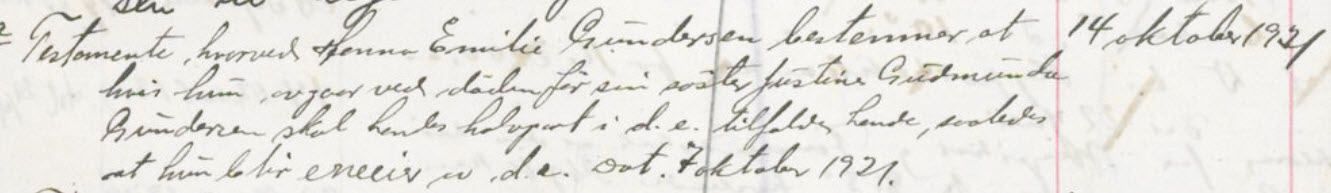 Testamente, hvorved Hanna Emilie Gundersen bestemmer at 14 oktober 1921
hvis hun avgaar ved døden før sin søster Justine Gudmunda
Gundersen skal hendes halvpart i d. e. tilfalde hende, saaledes
at hun blir eneeier av d. e. Dat. 7 oktober 1921.